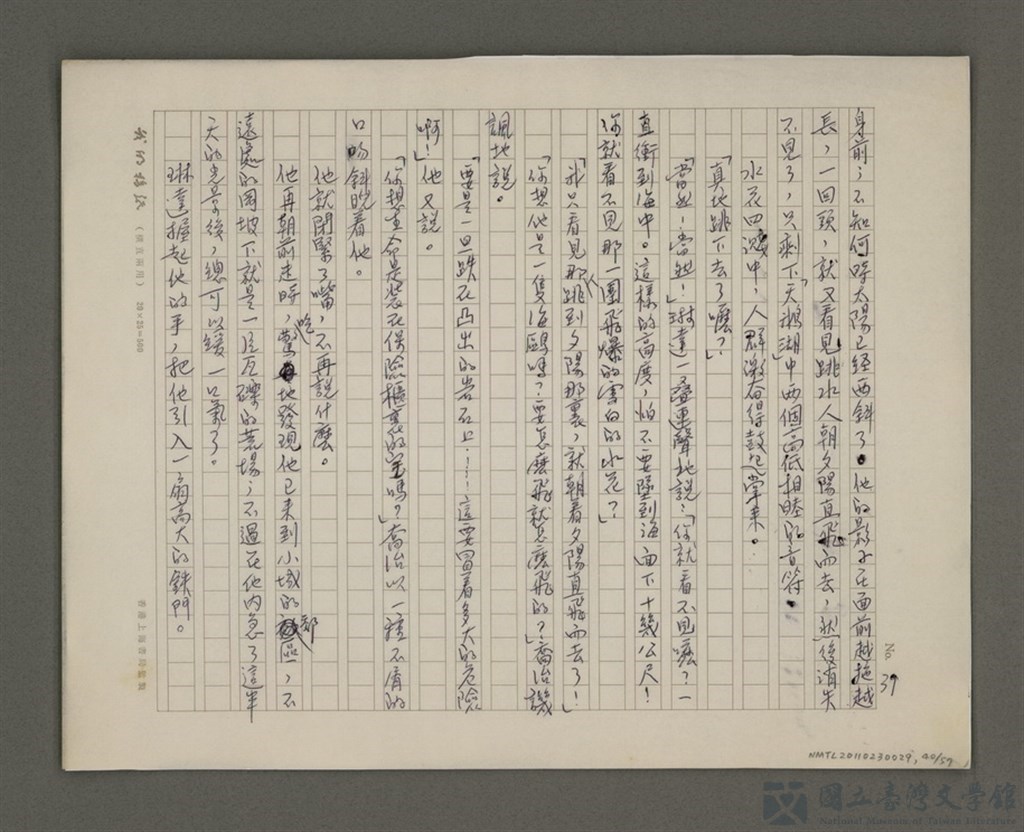 No. 37
身前；不知何時太陽已經西斜了。他的影子在面前越拖越
長，一回頭，就又看見跳水人朝夕陽直飛而去，然後消失
不見了，只剩下「天鵝湖」中兩個高低相睦的音符。
水花四濺中，人群激奮得鼓起掌來。
「真地跳下去了嚒？」
「當然！當然！」琳達一疊連聲地說：「你就看不見嚒？一
直衝到海中。這樣的高度，怕不要墜到海面下十幾公尺！
你就看不見那一團飛爆的雪白的水花？」
「我只看見他跳到夕陽那裏，就朝着夕陽直飛而去了！」
「你想他是一隻海鷗嗎？要怎麼飛就怎麼飛的？」喬治譏
諷地說。
「要是一旦跌在凸出的岩石上……這要冒着多大的危險
啊！」他又說。
「你想生命是裝在保險櫃裏的嗎？」喬治以一種不屑的
口吻斜睨着他。
他就閉緊了嘴，不再說什麼。
他再朝前走時，驚地發現他已來到小城的郊區，不
遠處的岡坡下就是一片瓦礫的荒場；不過在他內急了這半
天的光景後，總可以緩一口氣了。
琳達握起他的手，把他引入一扇高大的鉄門。
（橫直兩用） 20×25=500
香港上海書局監製
NMTL20110230029, 40/59
國立臺灣文學館
National Museum of Taiwan Literature